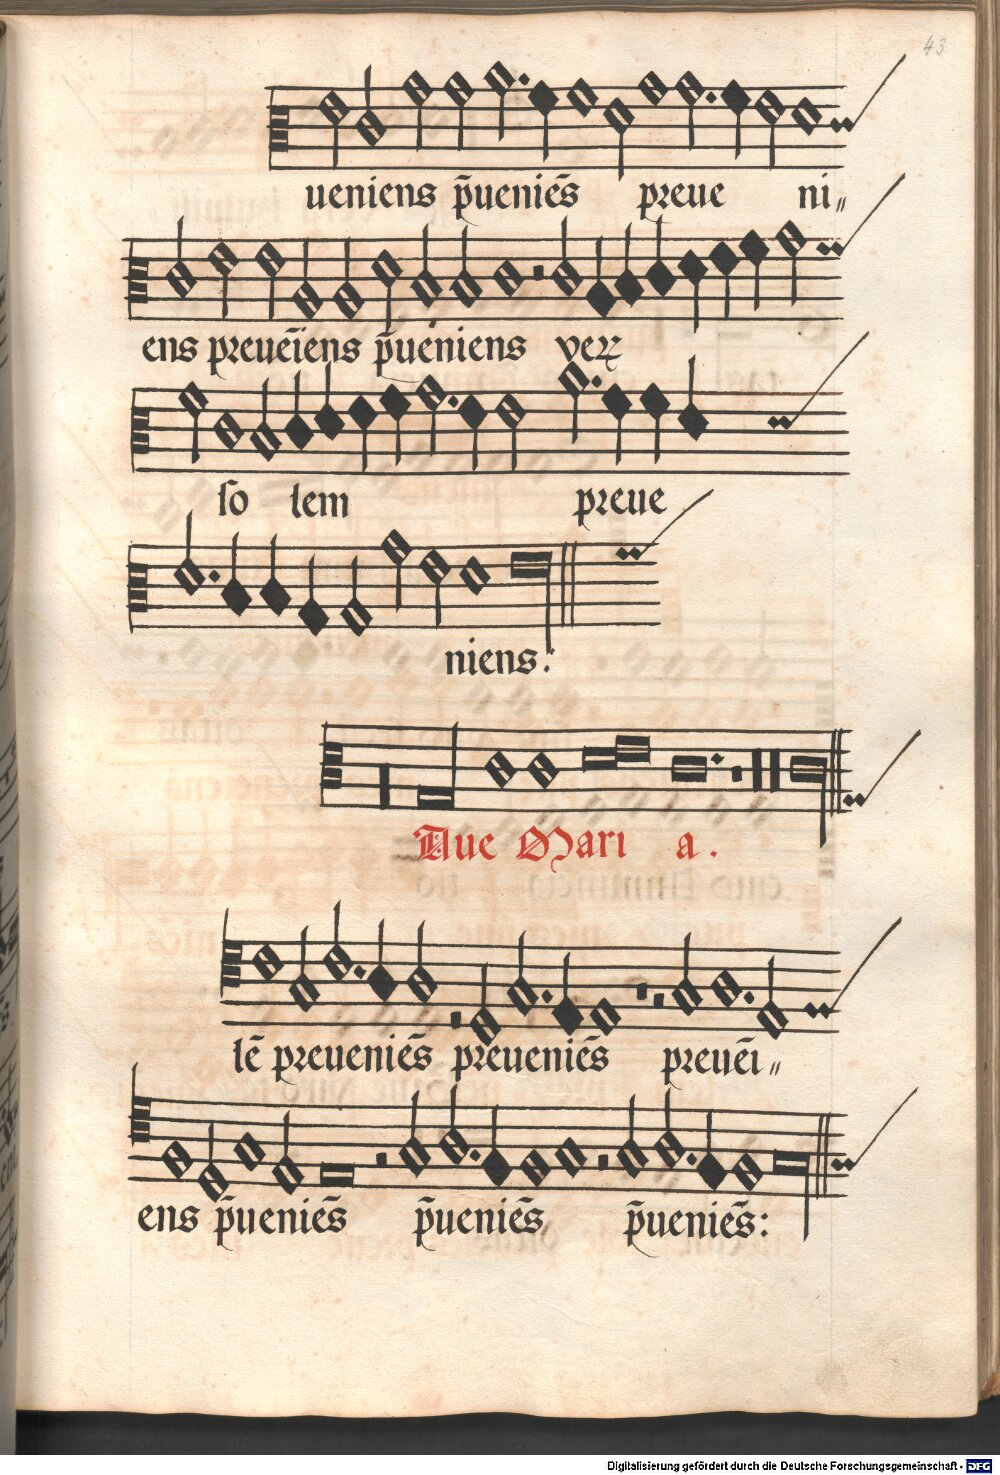 43
ueniens p̄ueniēs preue ni〃
ens preuēiens p̄ueniens veꝝ
ſo lem preue
niens:
Aue Mari a.
lē preueniēs preueniēs preuēi〃
ens p̄ueniēs p̄ueniēs p̄ueniēs:
Digitalisierung gefördert durch die Deutsche Forschungsgemeinschaft - DFG